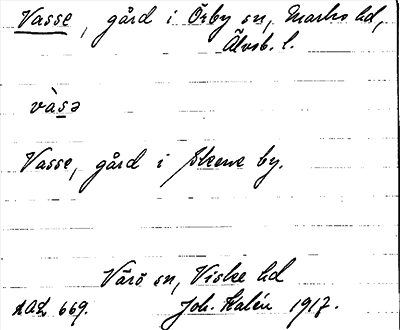 Vasse, gård i Örby sn, Marks hd,
Älvsb. l.
vàsə
Vasse, gård i Skene by.
Värö sn, Viske hd
AAL 669. Joh. Kalén 1917.